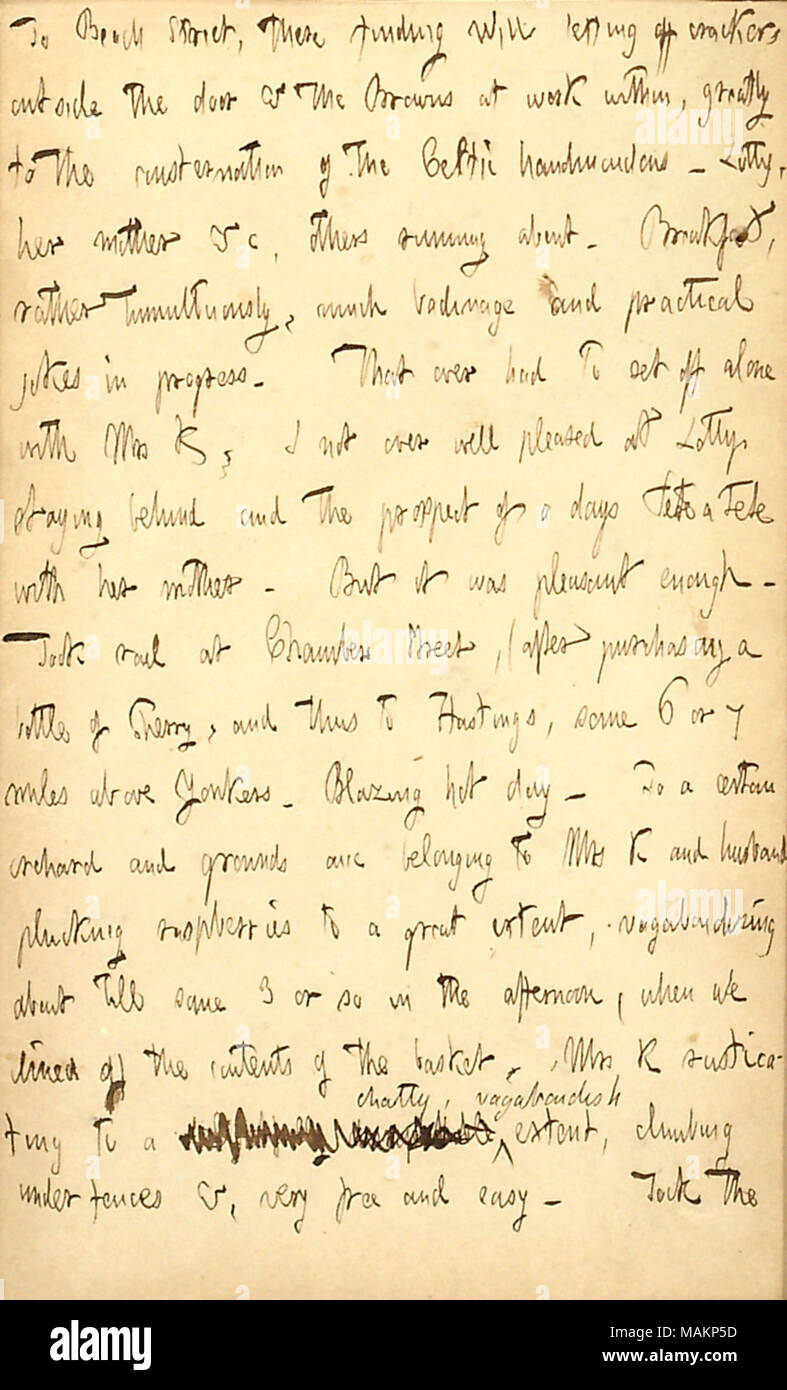 To Beach Street, there finding Will letting off crackers
outside the door & the Browns at work within, greatly
to the consternation of the Celtic handmaidens - Lotty,
her mother &c, others running about - Breakfast,
rather tumultuously, much badinage and practical
jokes in progress - That over had to set off alone
with Mrs K, I not over well pleased at Lottys
staying behind and the prospect of a days Tete a Tete
with her mother - But it was pleasant enough -
Took rail at Chambers Street, (after purchasing a
bottle of Sherry, and thus to Hastings, some 6 or 7
miles above Yonkers - Blazing hot day - To a certain
orchard and grounds are belonging to Mrs K and husband
plucking raspberries to a great extent, vagabondizing
about till some 3 or so in the afternoon, when we
dined off the contents of the basket, Mrs K rustica-
chatty, vagabondish
ting to a extent, climbing
under fences &, very free and easy - Took the
alamy
Image ID: MAKP5D
www.alamy.com